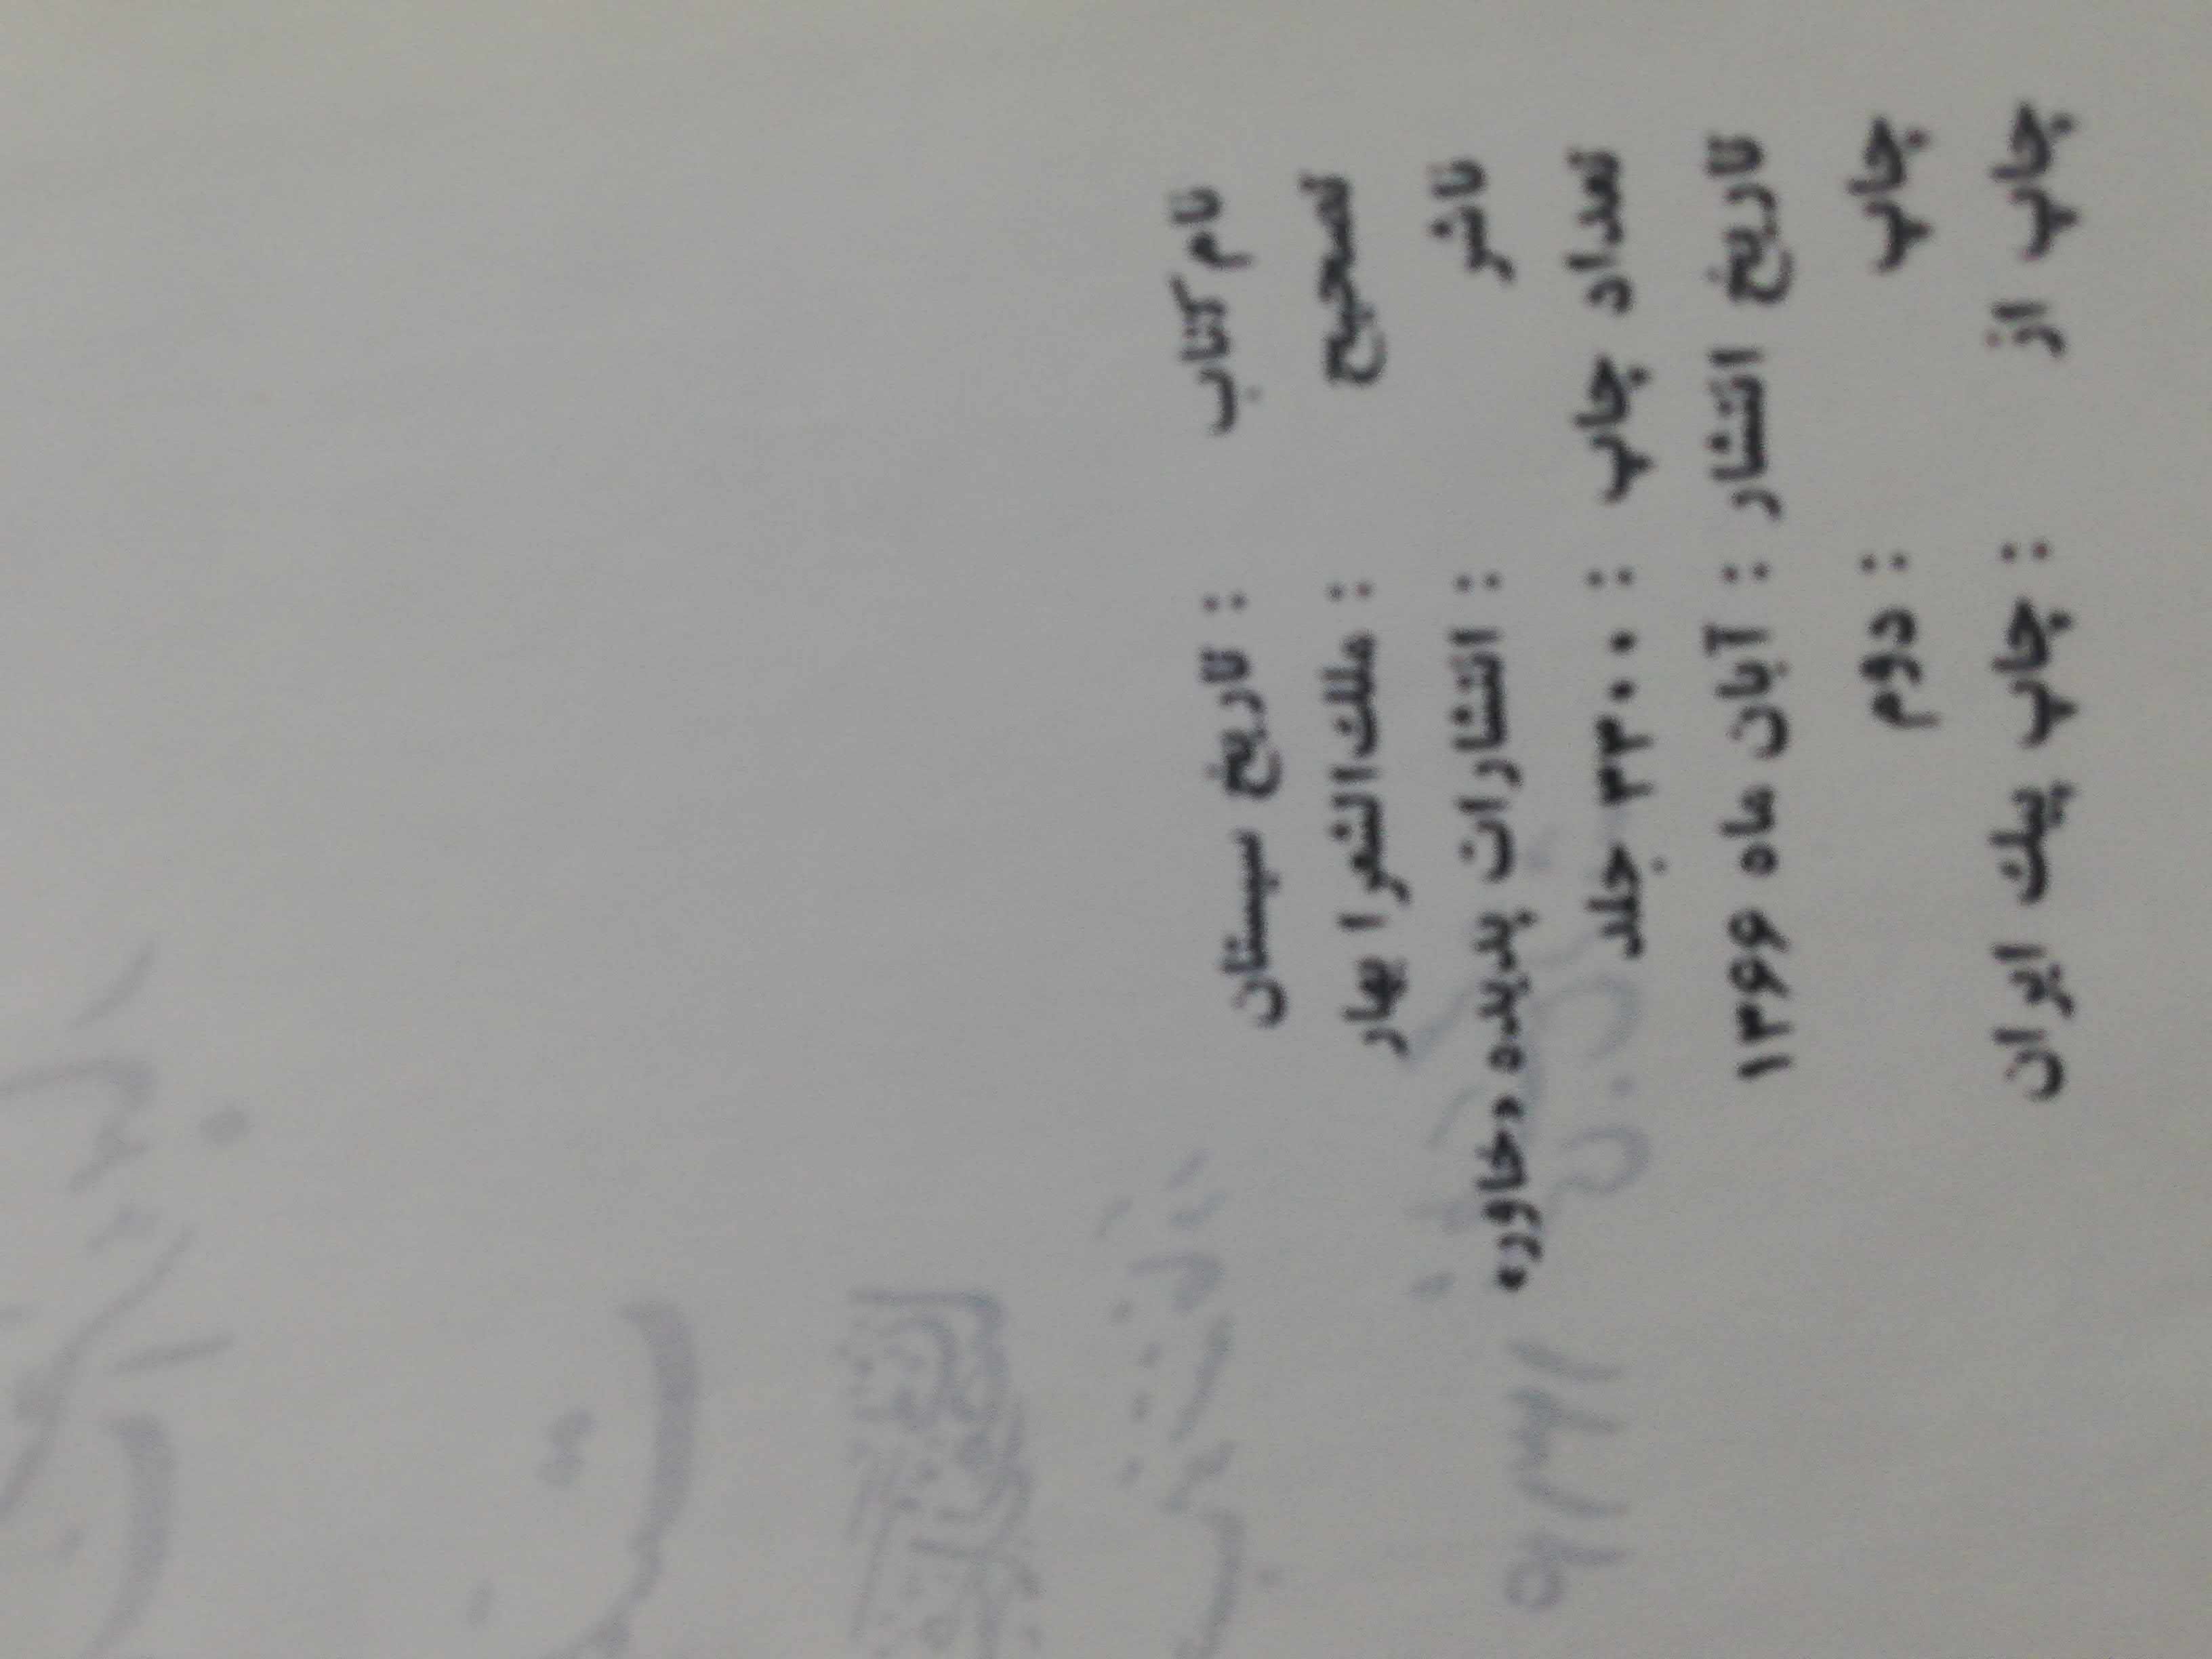 نام کتاب : تاریخ سیستان
تصحیح : ملك‌الشعرا بهار
ناشر : انتشارات پدیده «خاور»
تعداد چاپ : ۳۳۰۰ جلد
تاریخ انتشار : آبان ماه ۱۳۶۶
چاپ : دوم
چاپ از : چاپ پيك ایران